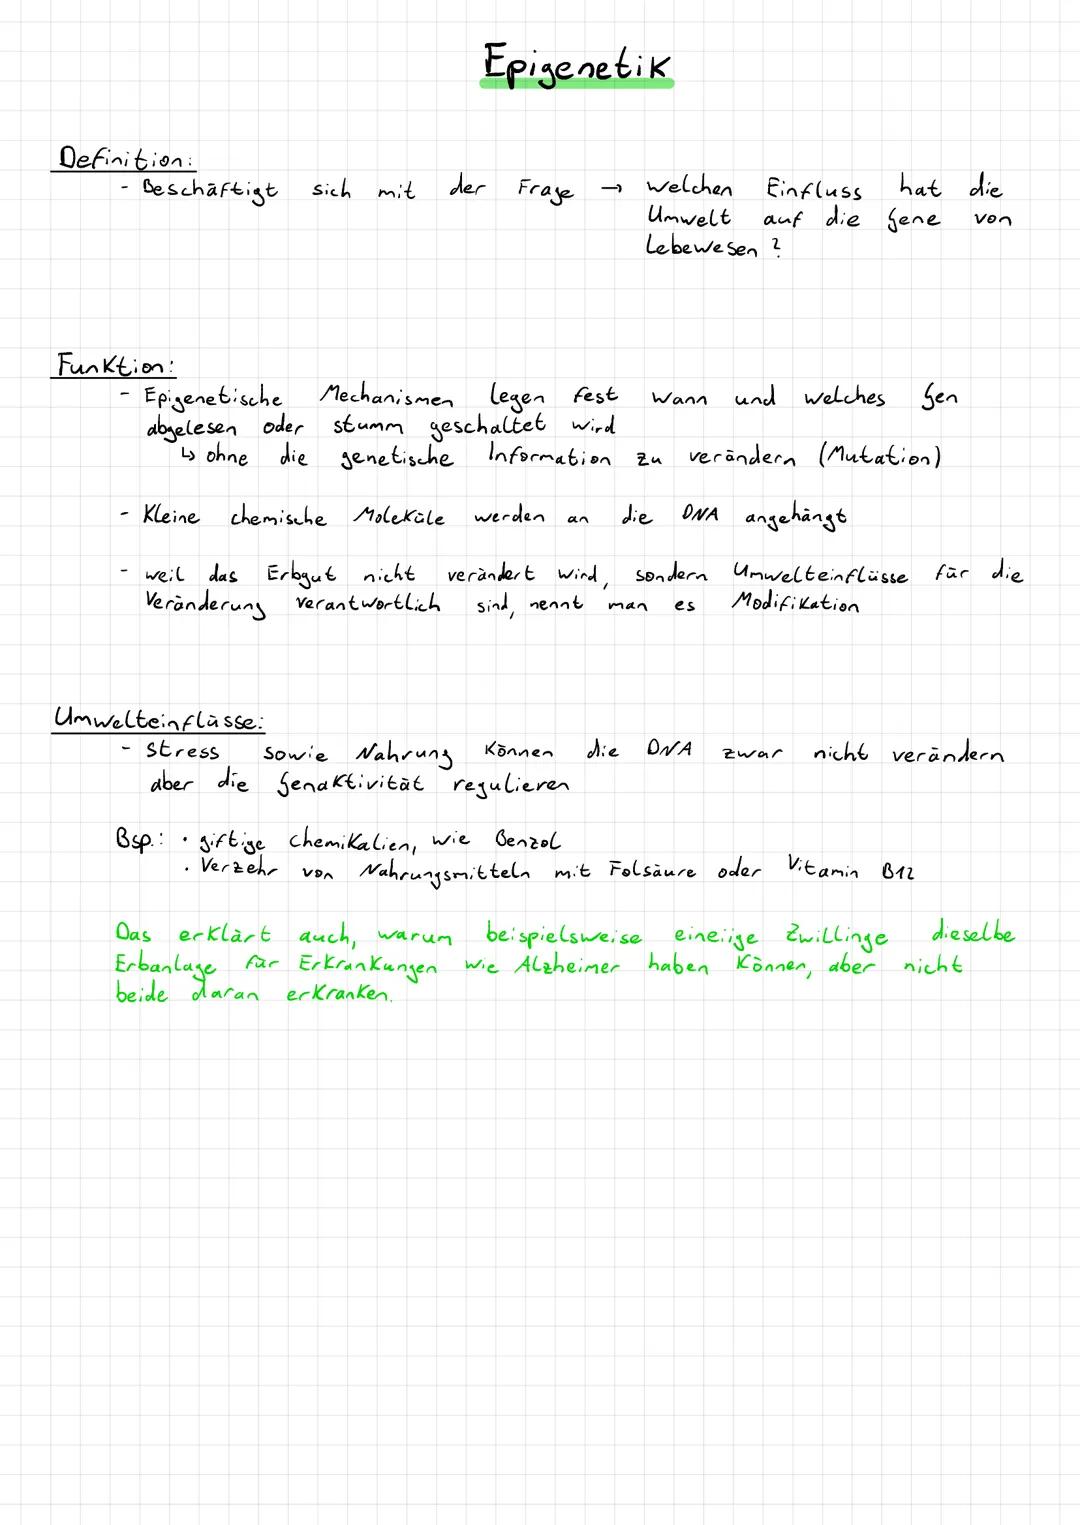 Epigenetik
Definition:
- Beschäftigt sich mit der Frage → welchen Einfluss hat die
Umwelt auf die Gene von
Lebewesen?
Funktion:
- Epigenetische Mechanismen legen fest wann und welches Gen
abgelesen oder stumm geschaltet wird
↳ ohne die genetische Information zu verändern (Mutation)
- Kleine chemische Moleküle werden an die DNA angehängt
- weil das Erbgut nicht verändert wird, sondern Umwelteinflüsse für die
Veränderung verantwortlich sind, nennt man es Modifikation
Umwelteinflüsse:
- Stress sowie Nahrung können die DNA zwar nicht verändern
aber die Genaktivität regulieren
Bsp.: · giftige Chemikalien, wie Benzol
· Verzehr von Nahrungsmitteln mit Folsäure oder Vitamin B12
Das erklärt auch, warum beispielsweise eineiige Zwillinge dieselbe
Erbanlage für Erkrankungen wie Alzheimer haben können, aber nicht
beide daran erkranken.